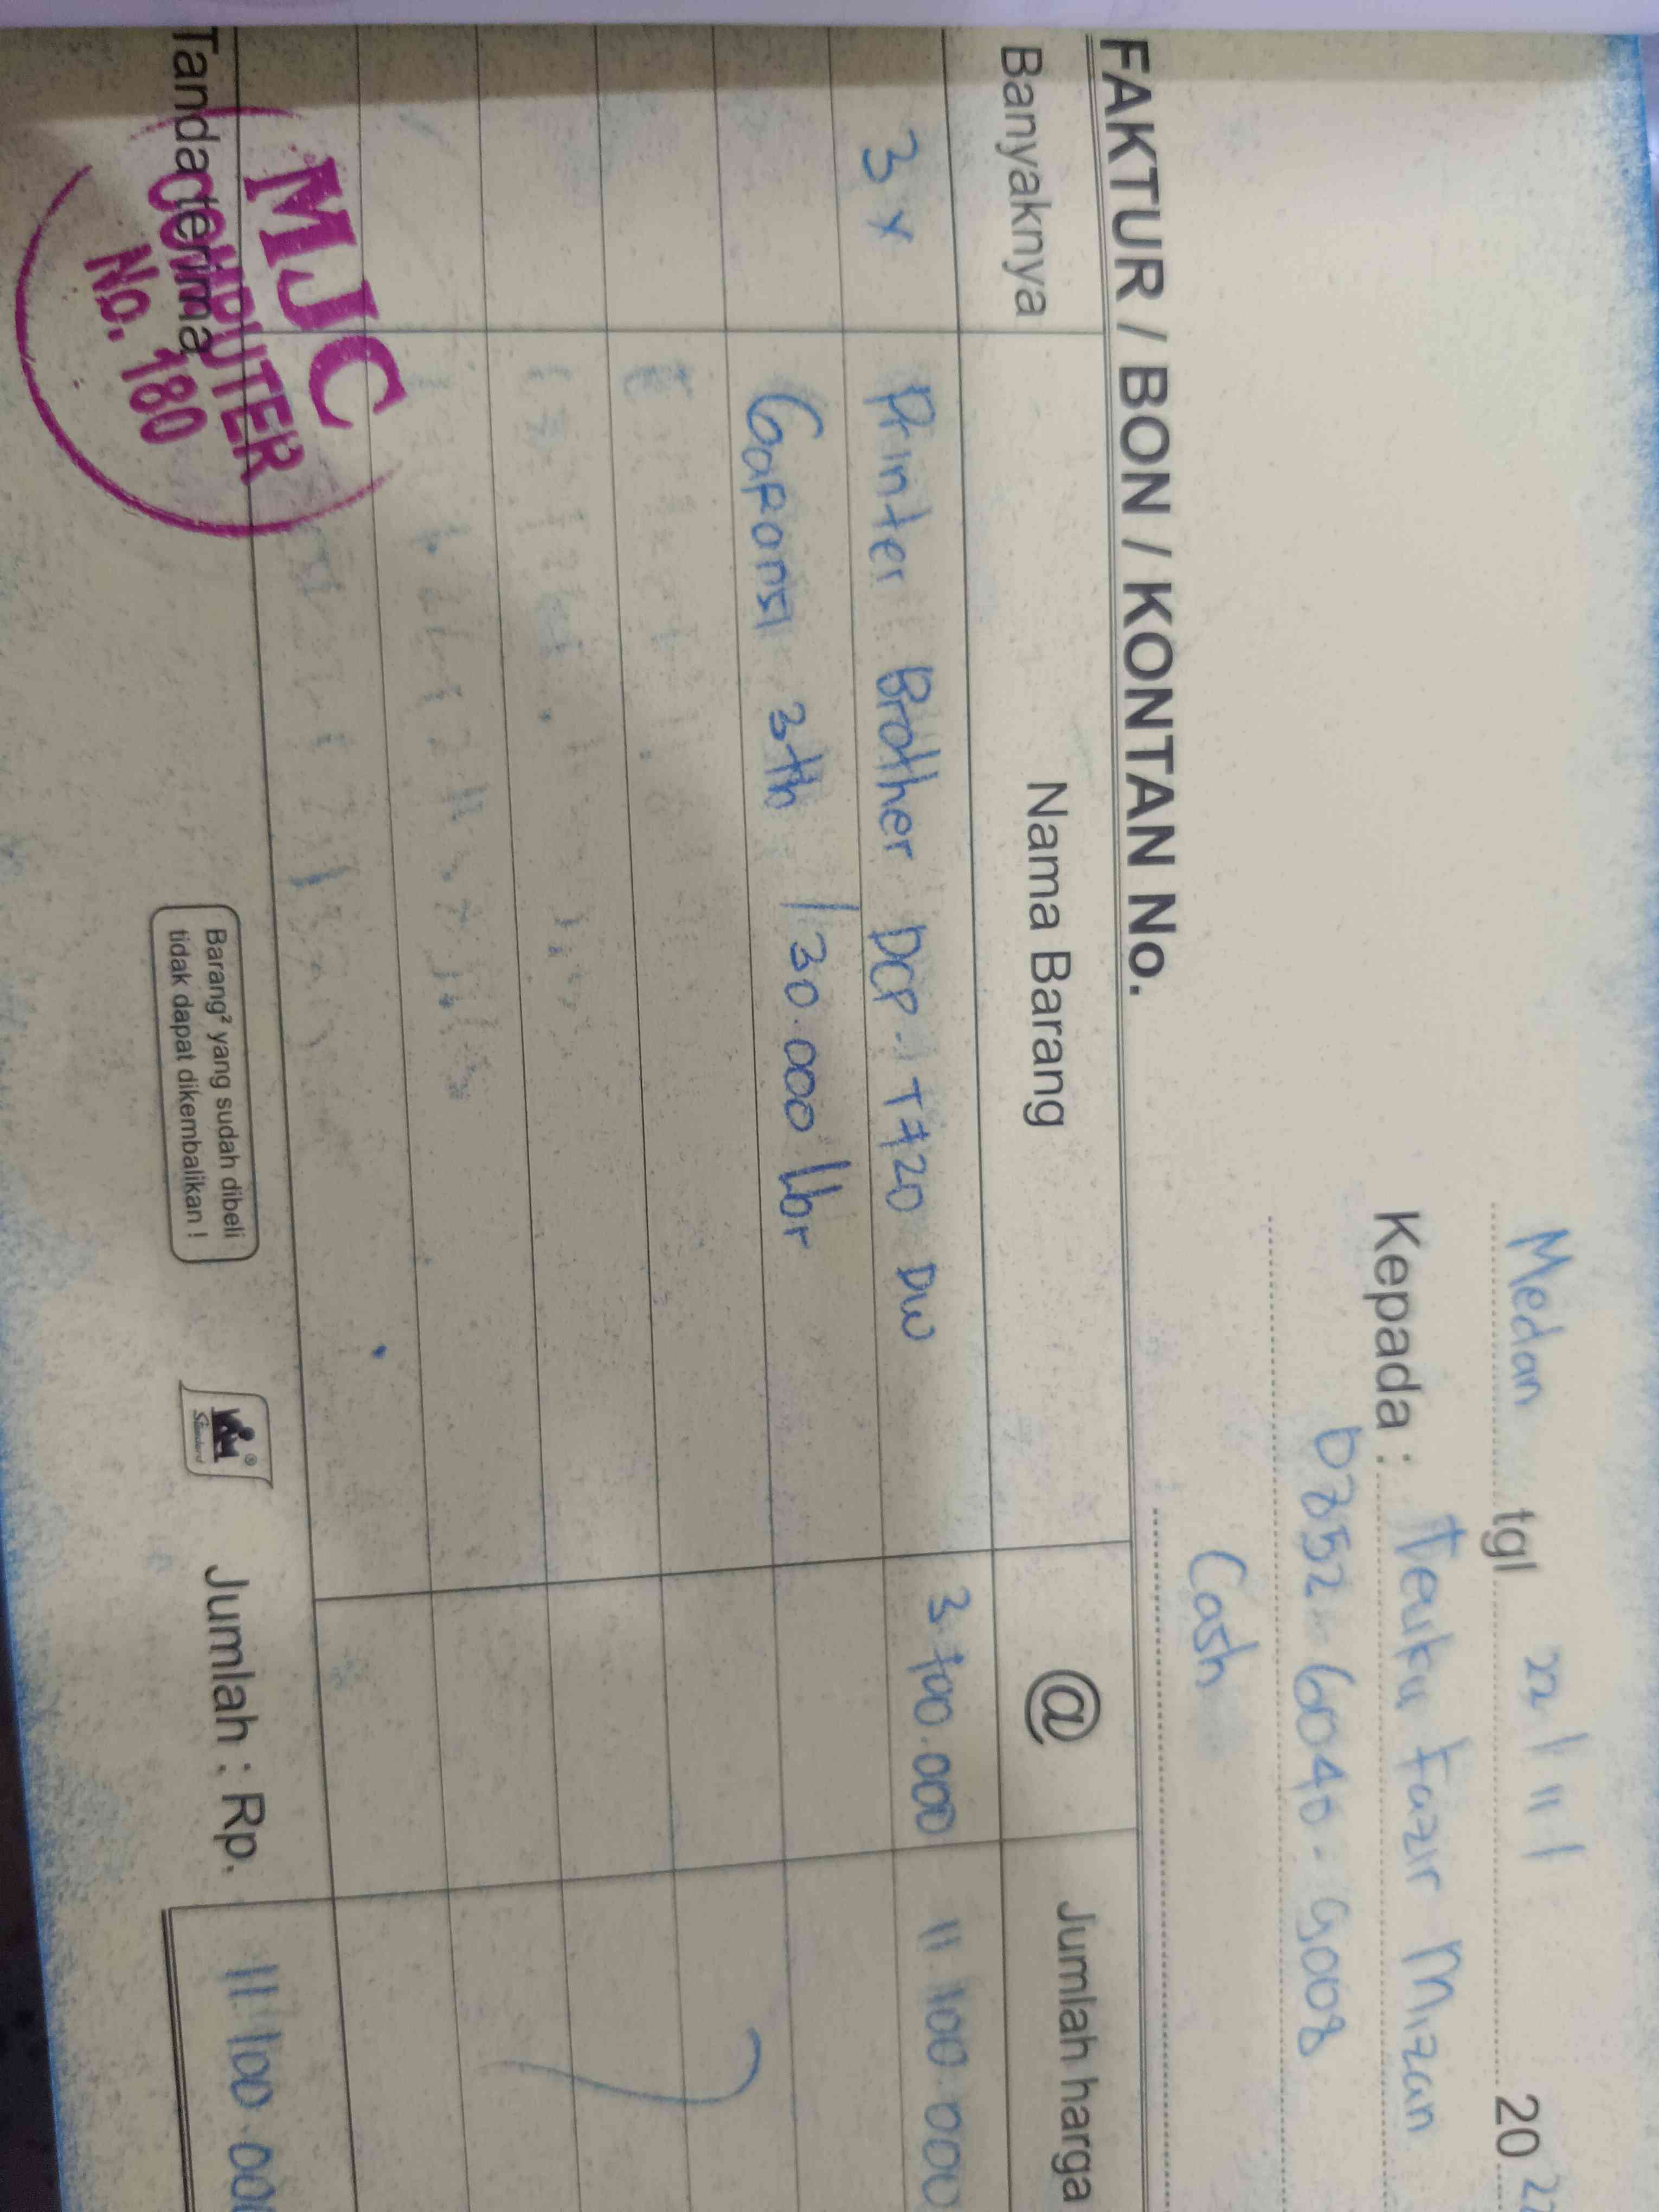 Medan tgl 22/11/ 2022
Kepada : Teuku Fazir Mizan
0852-6040-9008
Cash
FAKTUR / BON / KONTAN No.
Banyaknya Nama Barang @ Jumlah harga
3 x Printer Brother DCP-T720 DW 3 700.000 11 100 000
Garansi 3th / 30.000 lbr
Tanda terima
MJC
COMPUTER
No. 180
Barang² yang sudah dibeli
tidak dapat dikembalikan !
Standard
Jumlah : Rp. 11 100 00